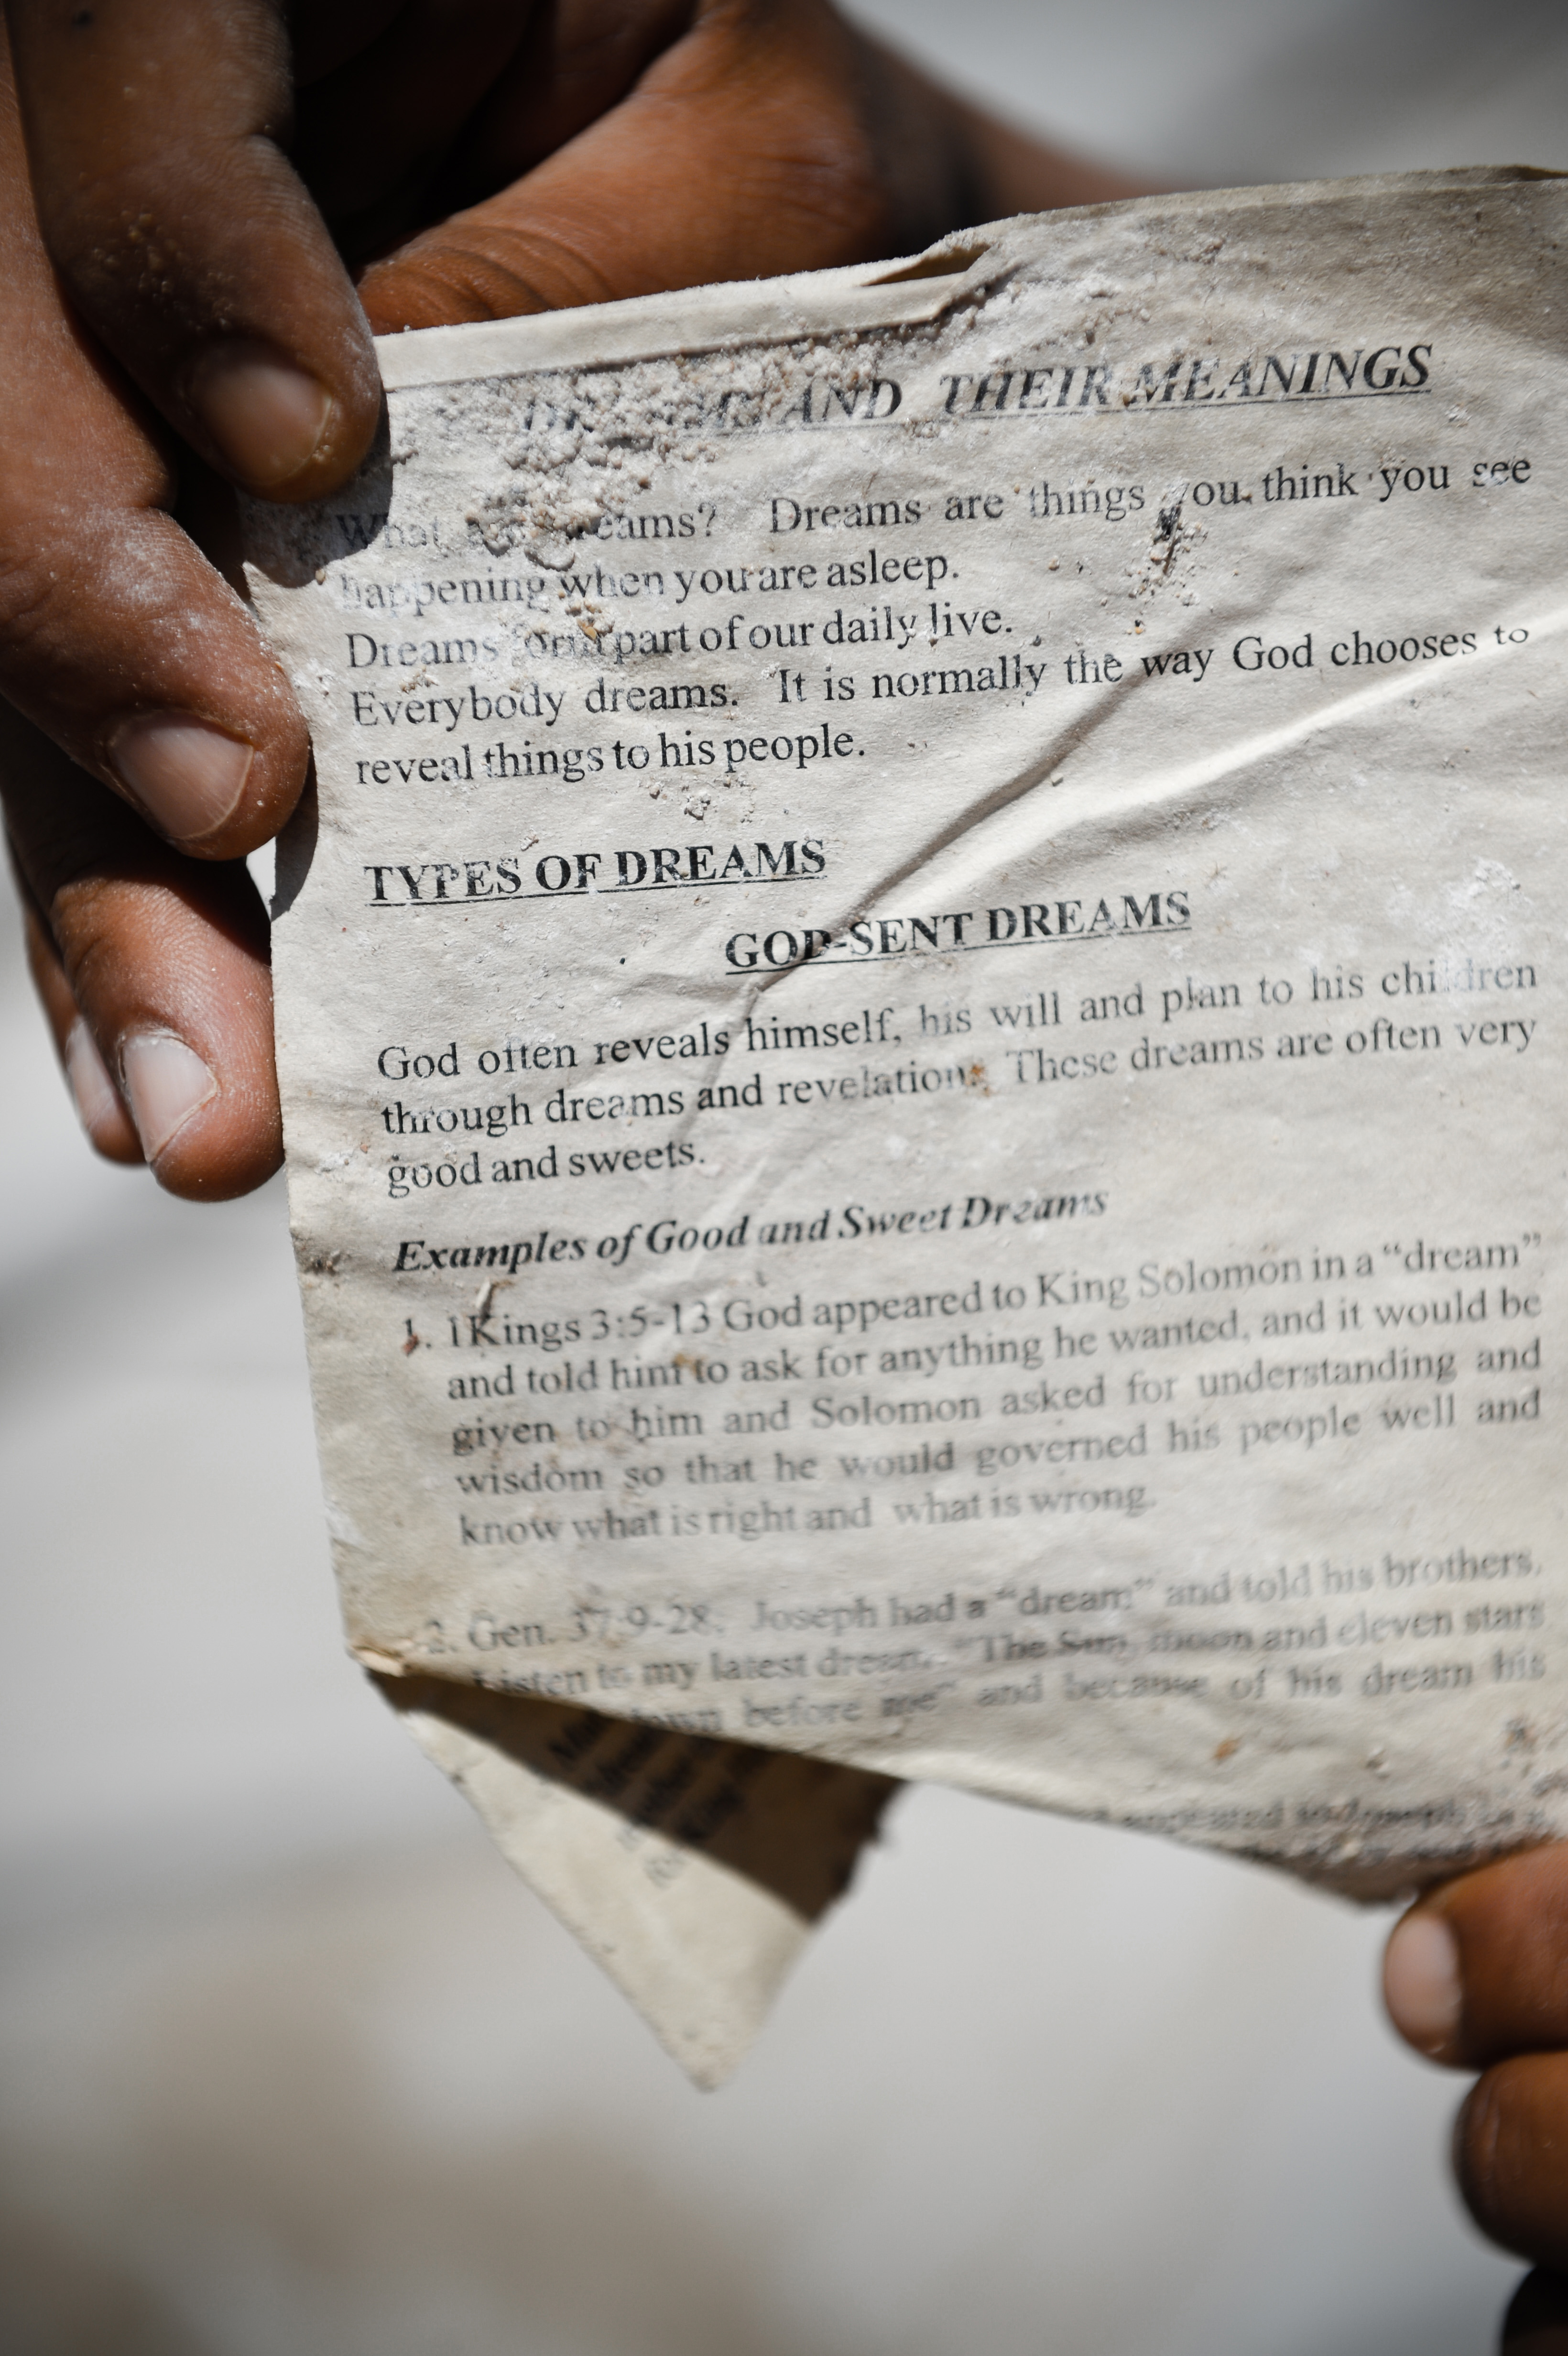 AND THEIR MEANINGS
What are dreams? Dreams are things you think you see
happening when you are asleep.
Dreams form part of our daily live.
Everybody dreams. It is normally the way God chooses to
reveal things to his people.
TYPES OF DREAMS
GOD-SENT DREAMS
God often reveals himself, his will and plan to his children
through dreams and revelations. These dreams are often very
good and sweets.
Examples of Good and Sweet Dreams
1. 1Kings 3:5-13 God appeared to King Solomon in a “dream”
and told him to ask for anything he wanted, and it would be
given to him and Solomon asked for understanding and
wisdom so that he would governed his people well and
know what is right and what is wrong.
2. Gen. 37:9-28. Joseph had a “dream” and told his brothers,
Listen to my latest dream. “The Sun, moon and eleven stars
down before me” and because of his dream his